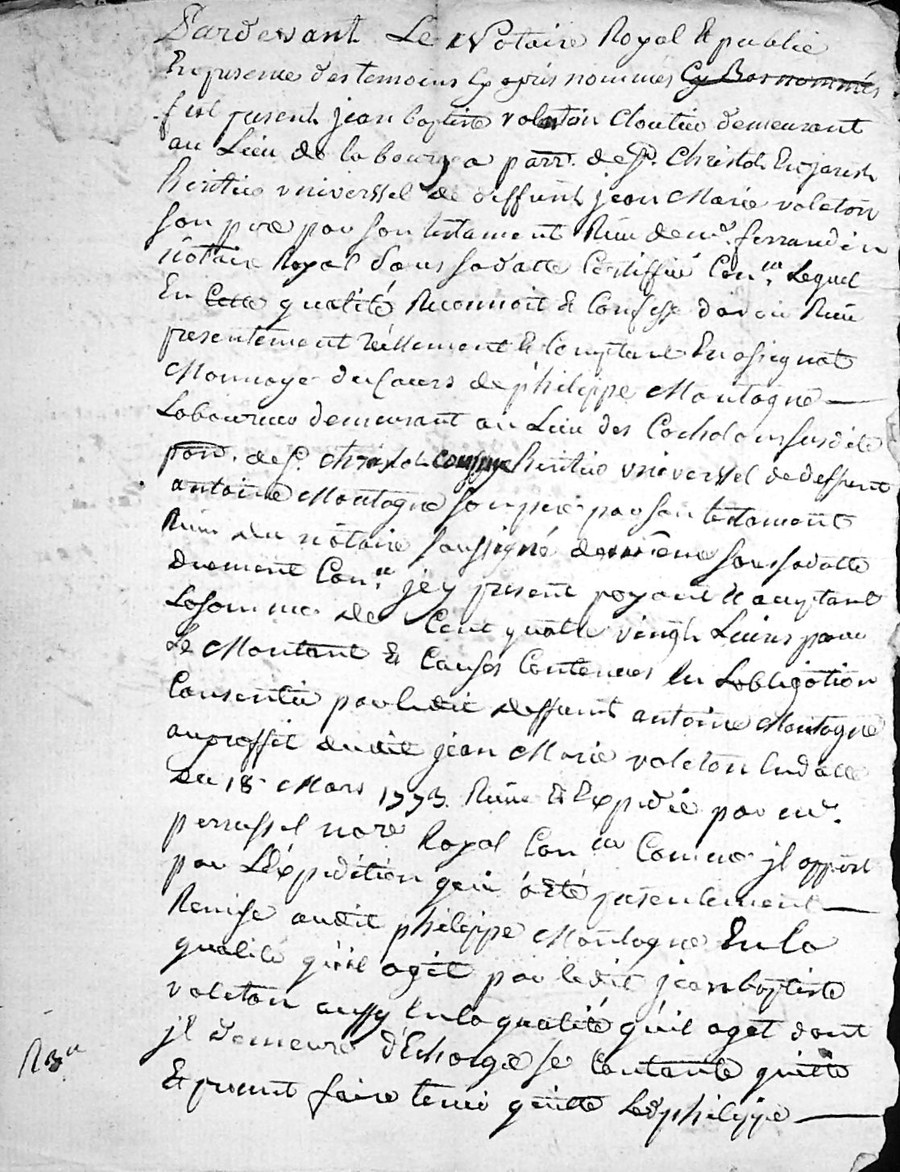 Pardevant Le Notaire Royal & public
En presence des temoins cy apris nommés cy Bas nommés
fut present jean baptiste valeton cloutier demeurant
au Lieu de la bourgea parr. de St. Christôl En jarest
heritier vniverssel de deffunt jean Marie valeton
son pere par son testament Recu de me. ferrandin
nôtaire Royal sous sa datte Certiffié Con.lle Lequel
En Cette qualité Reconnoit & Confesse d'avoir Recu
presentement réellement & Comptant En assignat
Monnoye du Cours de philippe Montagne
Laboureur demeurant au Lieu des
parr. de St. christôl heritier vniverssel de deffunt
antoine Montagne son pere par son testament
Recu du nôtaire soussigné sous sa datte
Con.lle jcy present payant & acceptant
La somme de Cent quatre vingt Livres pour
Le Montant & Causes Contenues En Lobligation
Consentie par ledit deffunt antoine Montagne
au proffit dudit jean Marie valeton En datte
du 18. Mars 1773. Recue & Expediée par me.
perrussel nore Royal Con.lle Comme jl appert
par L'éxpédition qui a été presentement
Remise audit philippe Montagne En la
qualité qu'il agit par ledit jean baptiste
valeton aussy En la qualité qu'il aget dont
jl demeure d'Echargé se Contante quitte
Et promet faire tenir quitte Ledt philippe